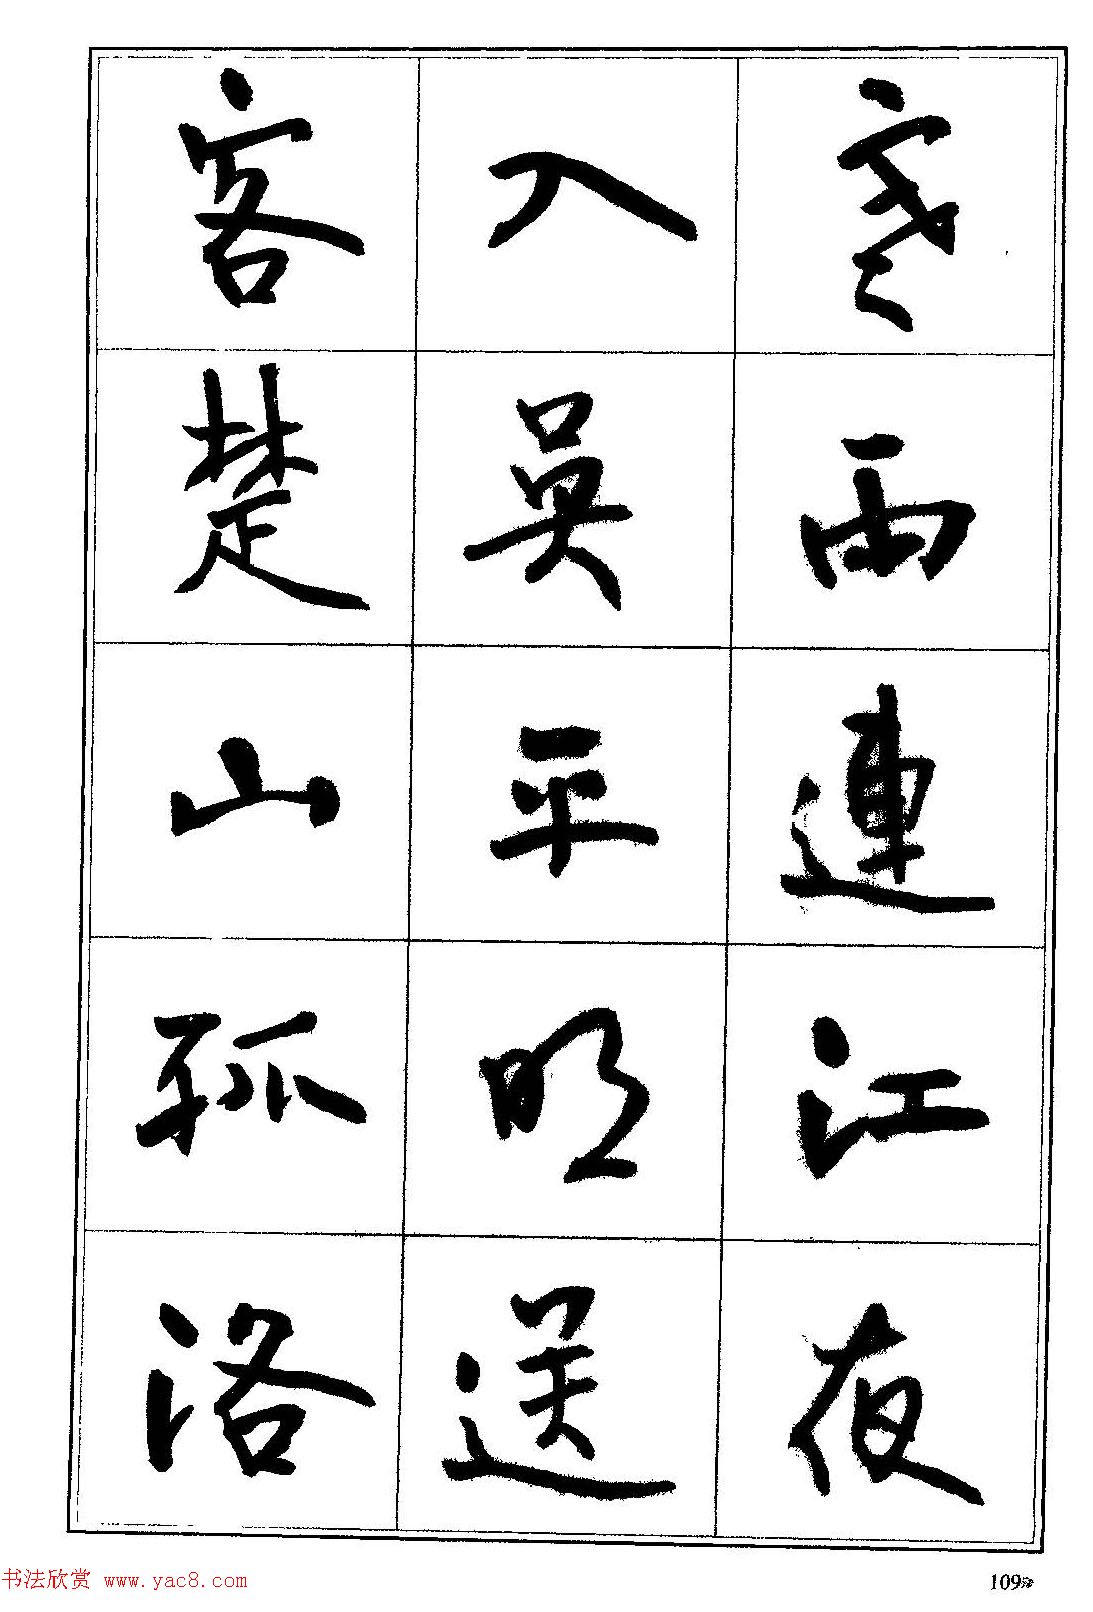 寒雨連江夜
入吳平明送
客楚山孤洛
书法欣赏 www.yac8.com
109